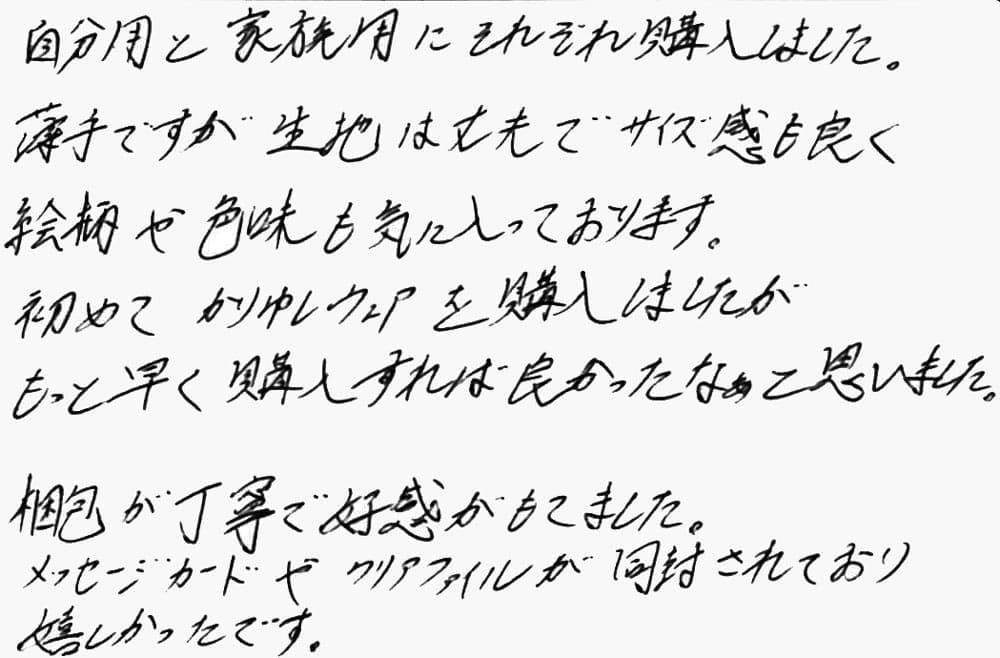 自分用と家族用にそれぞれ購入しました。
薄手ですが生地は丈夫でサイズ感も良く
絵柄や色味も気に入っております。
初めてかりゆしウェアを購入しましたが
もっと早く購入すれば良かったなぁと思いました。
梱包が丁寧で好感がもてました。
メッセージカードやクリアファイルが同封されており
嬉しかったです。